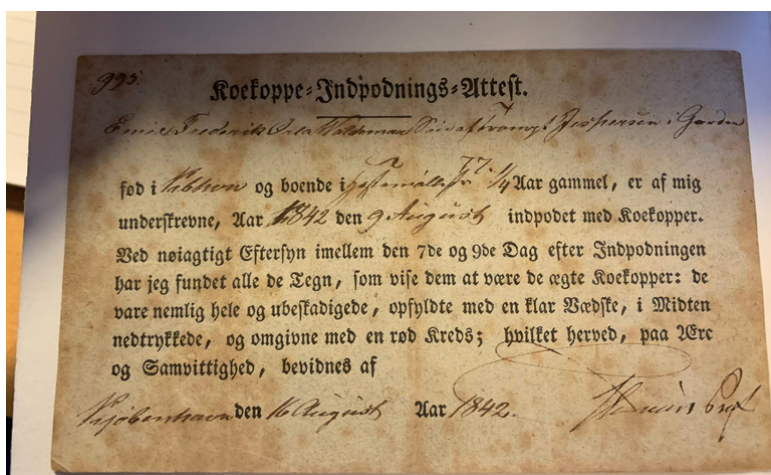 993.
Koekoppe=Indpodnings=Attest.
Emil Frederik Orla Waldemar Søn af Jespersen i Garden
fød i Kbhvn og boende i 1/4 Aar gammel, er af mig
underskrevne, Aar 1842 den 9 August indpodet med Koekopper.
Ved nøiagtigt Eftersyn imellem den 7de og 9de Dag efter Indpodningen
har jeg fundet alle de Tegn, som vise dem at være de ægte Koekopper: de
vare nemlig hele og ubeskadigede, opfyldte med en klar Vædske, i Midten
nedtrykkede, og omgivne med en rød Kreds; hvilket herved, paa Ære
og Samvittighed, bevidnes af
Kjøbenhavn den 16 August Aar 1842.